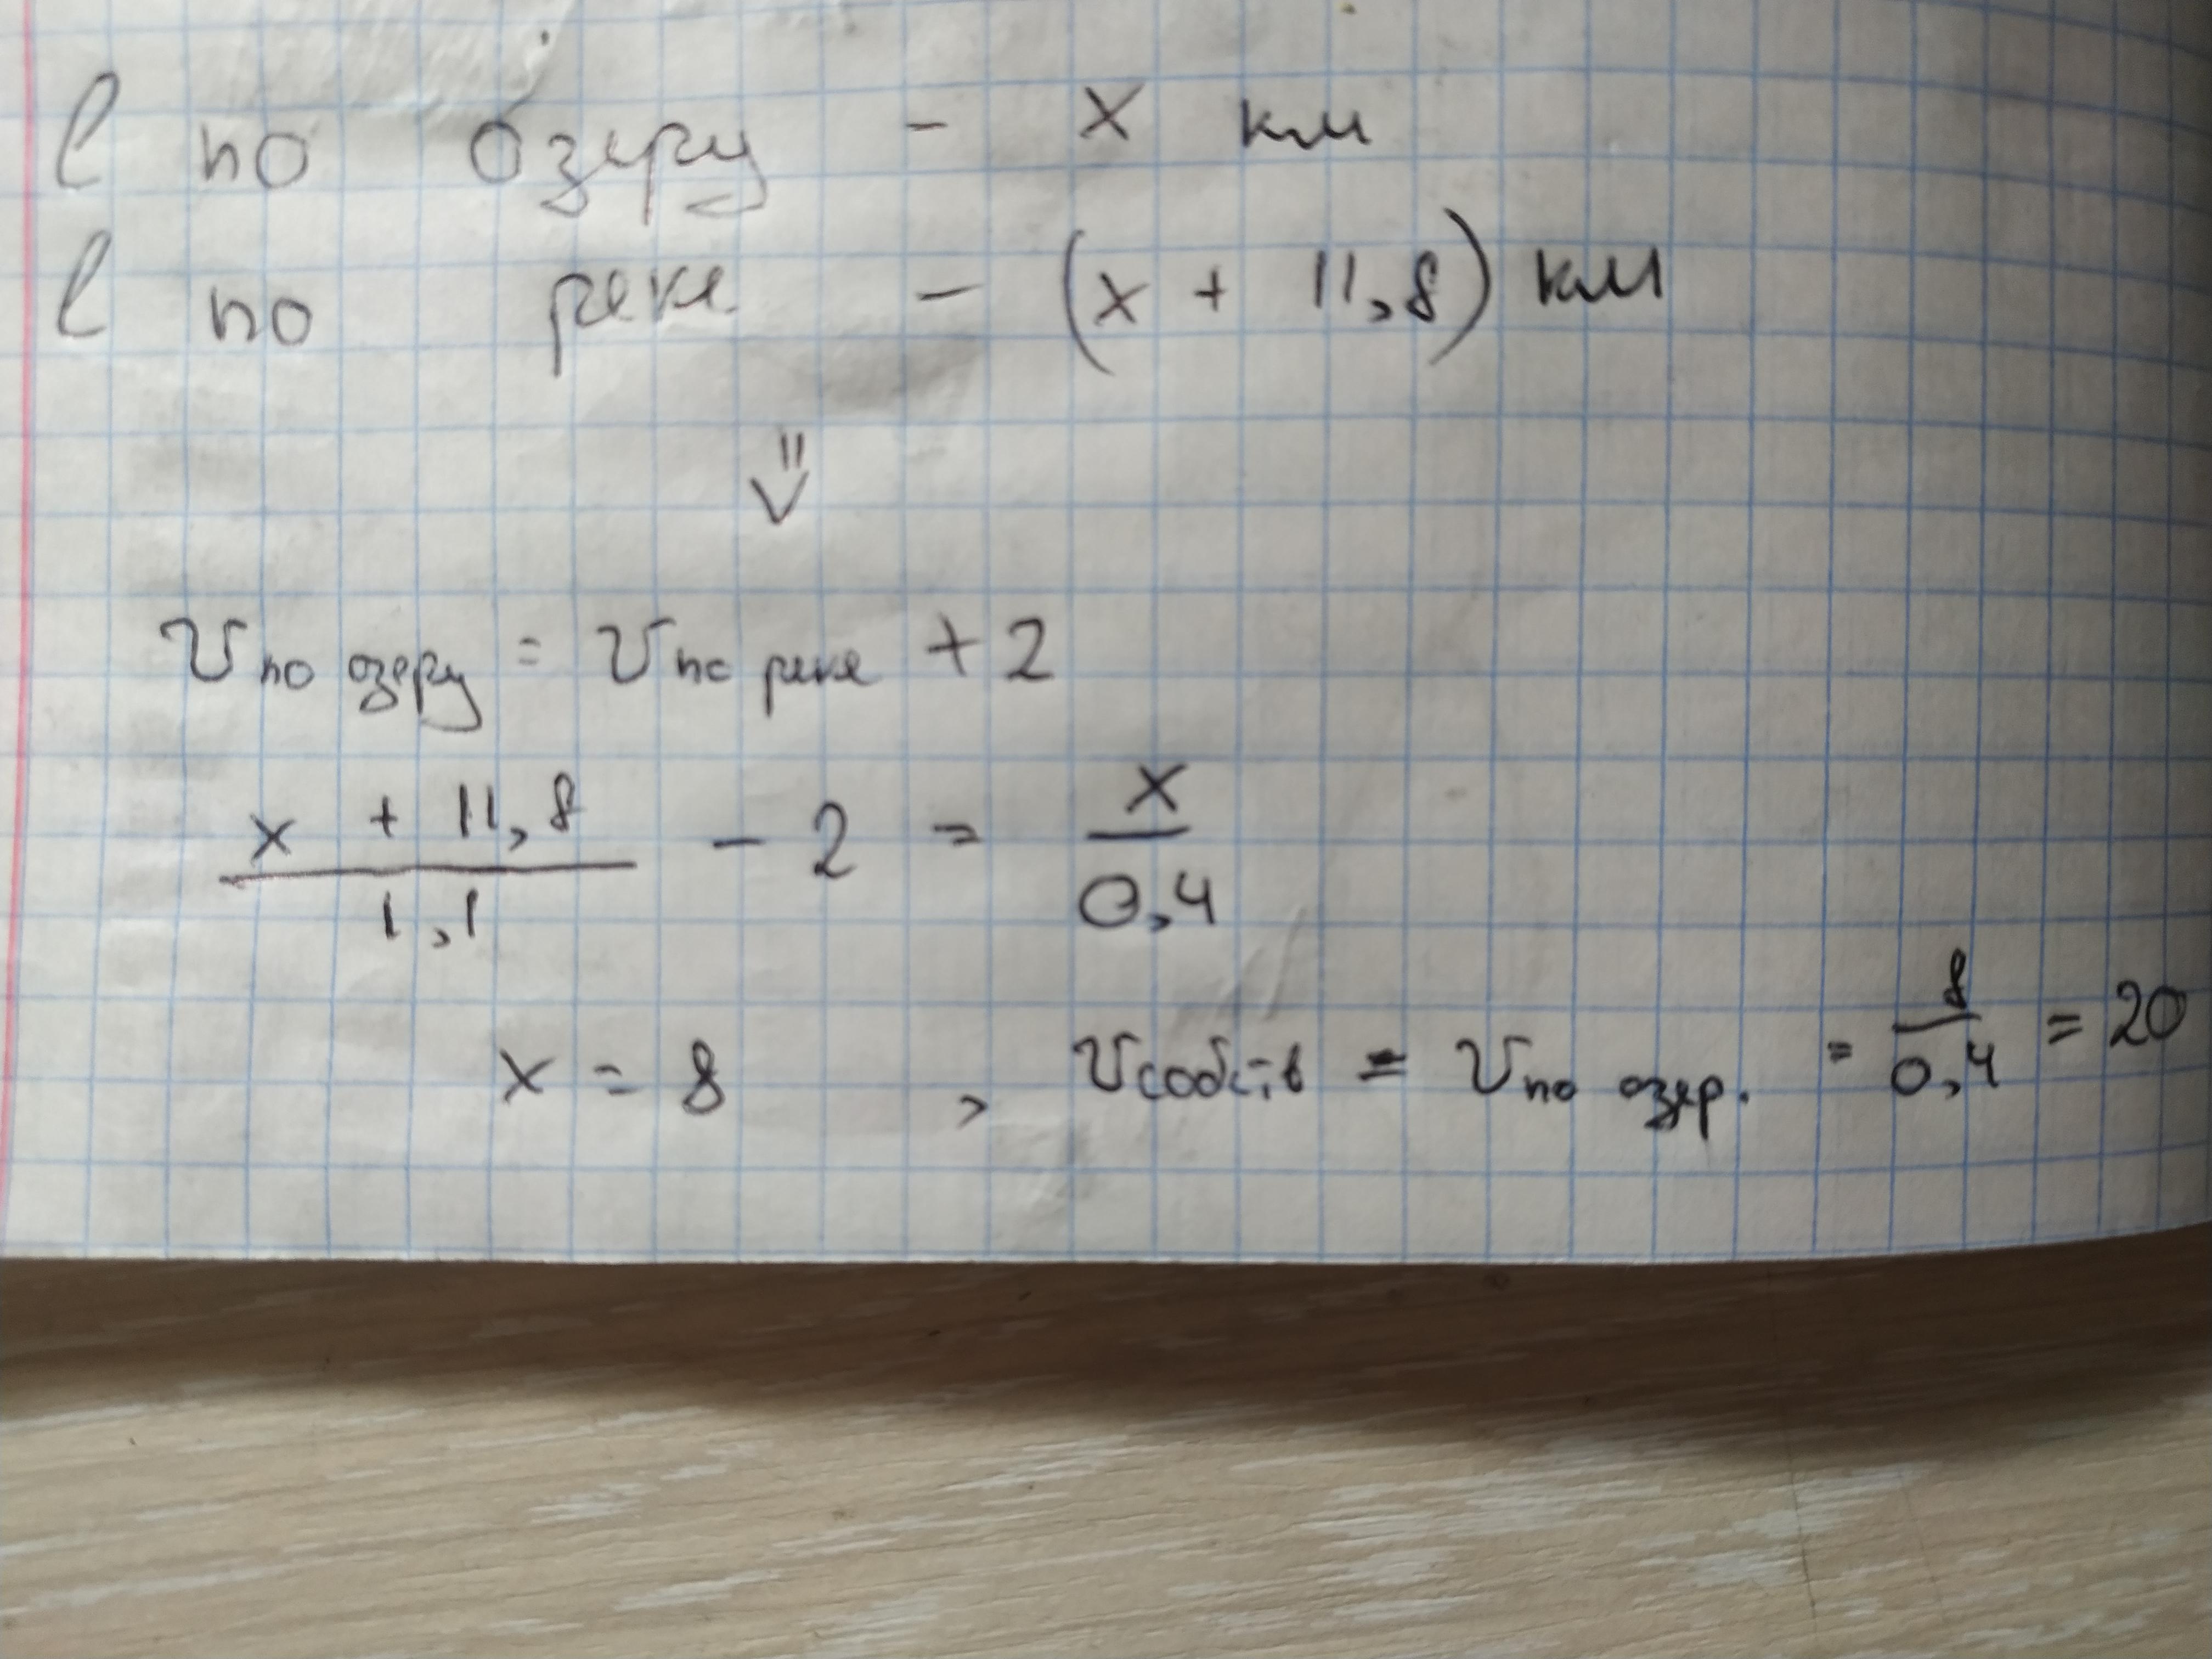 l по озеру - x км
l по реке - (x + 11,8) км
⇓
v по озеру = v по реке + 2
(x + 11,8)/1,1 - 2 = x/0,4
x = 8 , v собств = v по озер. = 8/0,4 = 20